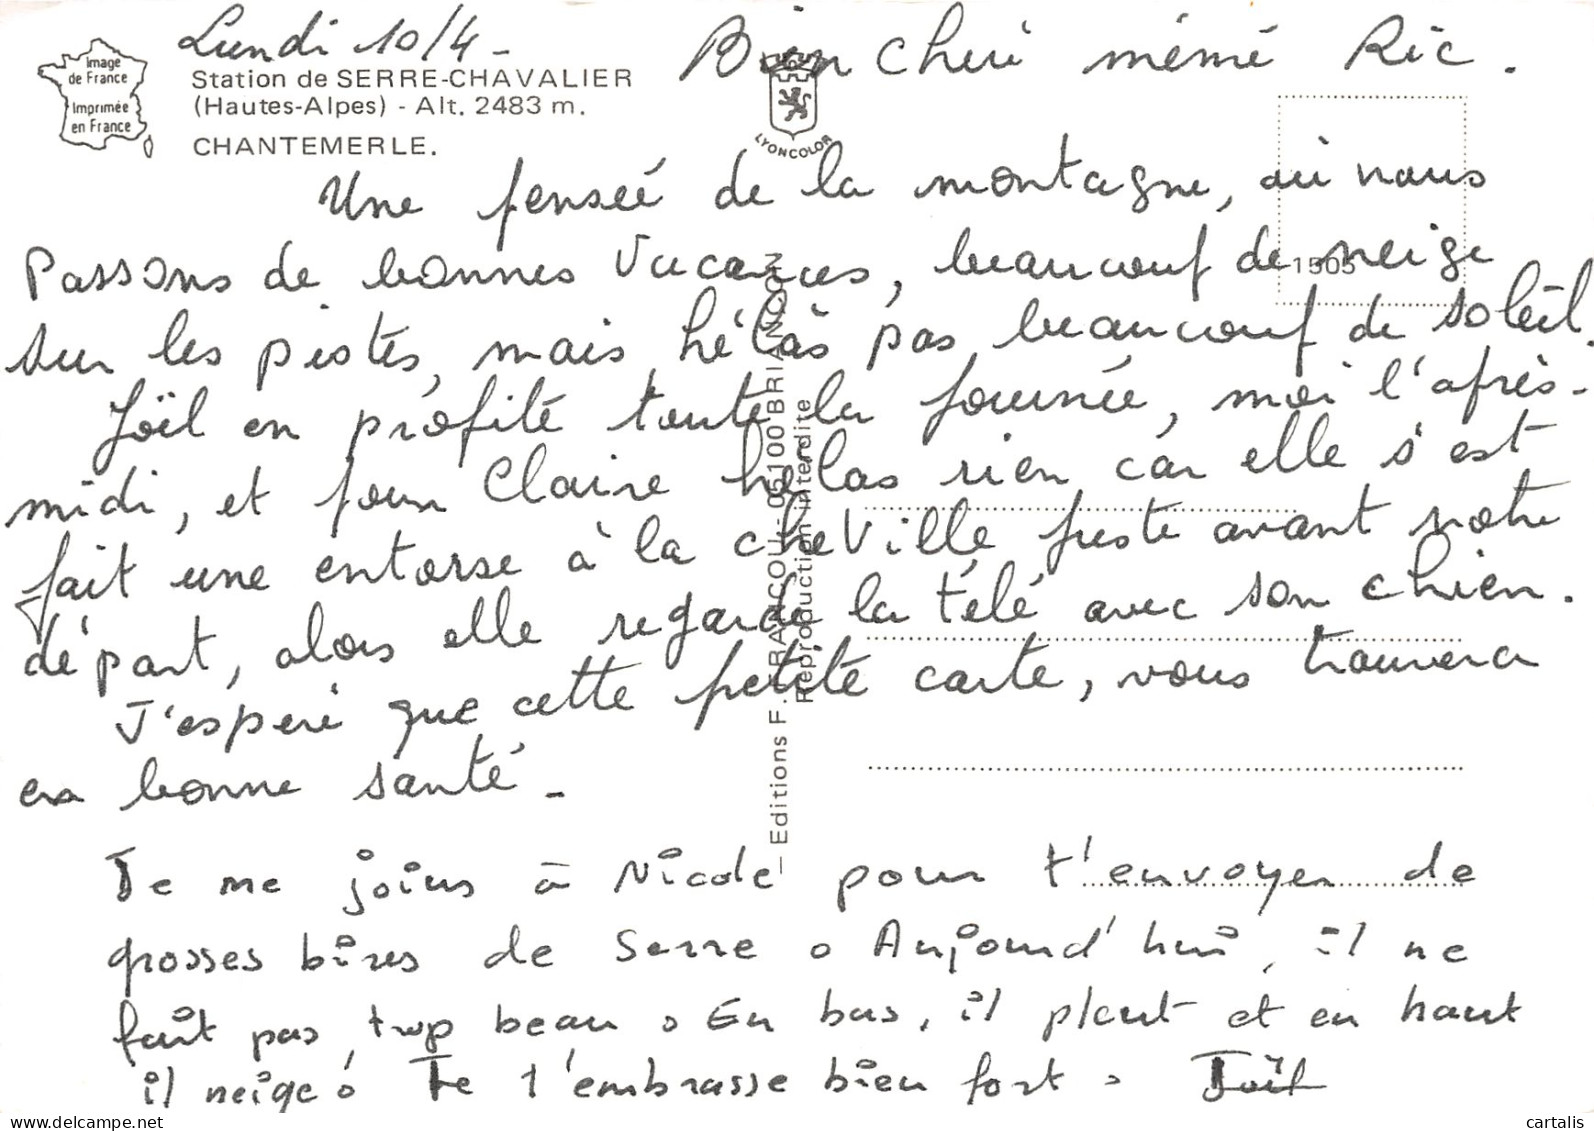 Lundi 10/4 -
Image
de France
Imprimée
en France
Station de SERRE-CHAVALIER
(Hautes-Alpes) - Alt. 2483 m.
CHANTEMERLE.
LYONCOLOR
Bien cheri mémé Ric.
Une penseé de la montagne, où nous
Passons de bonnes Vacances, beaucoup de neige
1505
sur les pistes, mais hélàs pas beaucoup de soleil.
Joël en profite toute la journée, moi l'après-
midi, et pour Claire hélas rien car elle s'est
fait une entorse à la cheVille, juste avant notre
départ, alors elle regarde la télé avec son chien.
J'esperé que cette petite carte, vous trouvera
en bonne santé -
Je me joins à Nicole pour t'envoyer de
grosses bises de Serre. Aujourd'hui, il ne
fait pas trop beau. En bas, il pleut et en haut
il neige. Je t'embrasse bien fort. Joël
— Editions F. 05100 BRIANÇON
Reproduction interdite
www.delcampe.net
cartalis